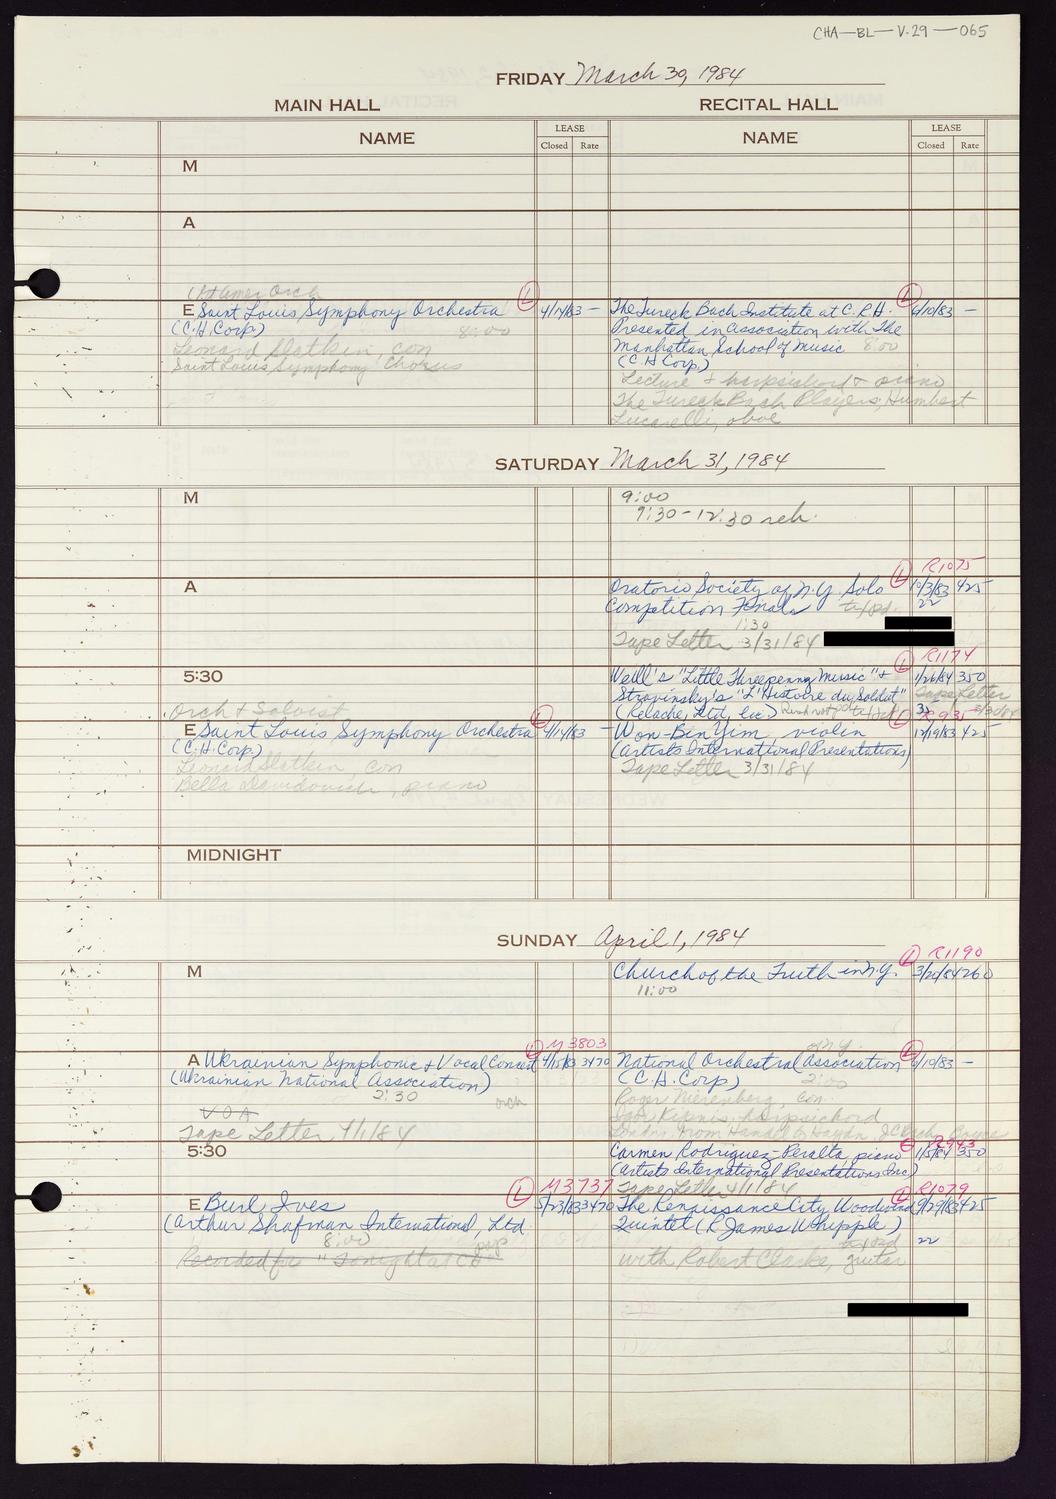 CHA—BL—V.29—065
FRIDAY March 30, 1984
MAIN HALL RECITAL HALL
NAME LEASE Closed Rate NAME LEASE Closed Rate
M
A
Amer Orch
E Saint Louis Symphony Orchestra L 4/14/83 —
(C.H. Corp) 8:00
Leonard Slatkin, con
Saint Louis Symphony Chorus
The Tureck Bach Institute at C.R.H. L 6/10/83 —
Presented in Association with The
Manhattan School of Music 8:00
(C.H Corp.)
Lecture + harpsichord + piano
The Tureck Bach Players, Humbert
Lucarelli, oboe
SATURDAY March 31, 1984
M
9:00
9:30-12:30 reh.
A
L R1075
Oratorio Society of N.Y. Solo 10/3/83 425
Competition Finals 22
1:30
Tape Letter 3/31/84
5:30
L R1174
Weill's "Little Threepenny Music" + 1/26/84 350
Stravinsky's "L'Histoire du Soldat" Tape Letter
(Relache, Ltd, Inc.)
Orch + Soloist
E Saint Louis Symphony Orchestra L 4/14/83 —
(C.H. Corp.)
Leonard Slatkin, con
Bella Davidovich, piano
L R931
Won-Bin Yim, violin 12/19/83 425
(Artists International Presentations)
Tape Letter 3/31/84
MIDNIGHT
SUNDAY April 1, 1984
M
L R1190
Church of the Truth in N.Y. 3/20/84 260
11:00
L M3803
A Ukrainian Symphonic + Vocal Concert 4/15/83 3470
(Ukrainian National Association)
2:30
orch
VOA
Tape Letter 4/1/84
of N.Y. L
National Orchestral Association 4/19/83 —
(C.H. Corp) 2:00
Roger Nierenberg, con.
Igor Kipnis, harpsichord
5:30
R943
Carmen Rodriguez-Peralta piano 1/5/84 350
(Artists International Presentations Inc)
Tape Letter 4/1/84
L M3737
E Burl Ives 5/23/83 3470
(Arthur Shafman International, Ltd
8:00 pop
Recorded for "Tonight at CH
L R1079
The Renaissance City Woodwind 9/27/83 425
Quintet (R James Whipple)
22
with Robert Clarke, guitar